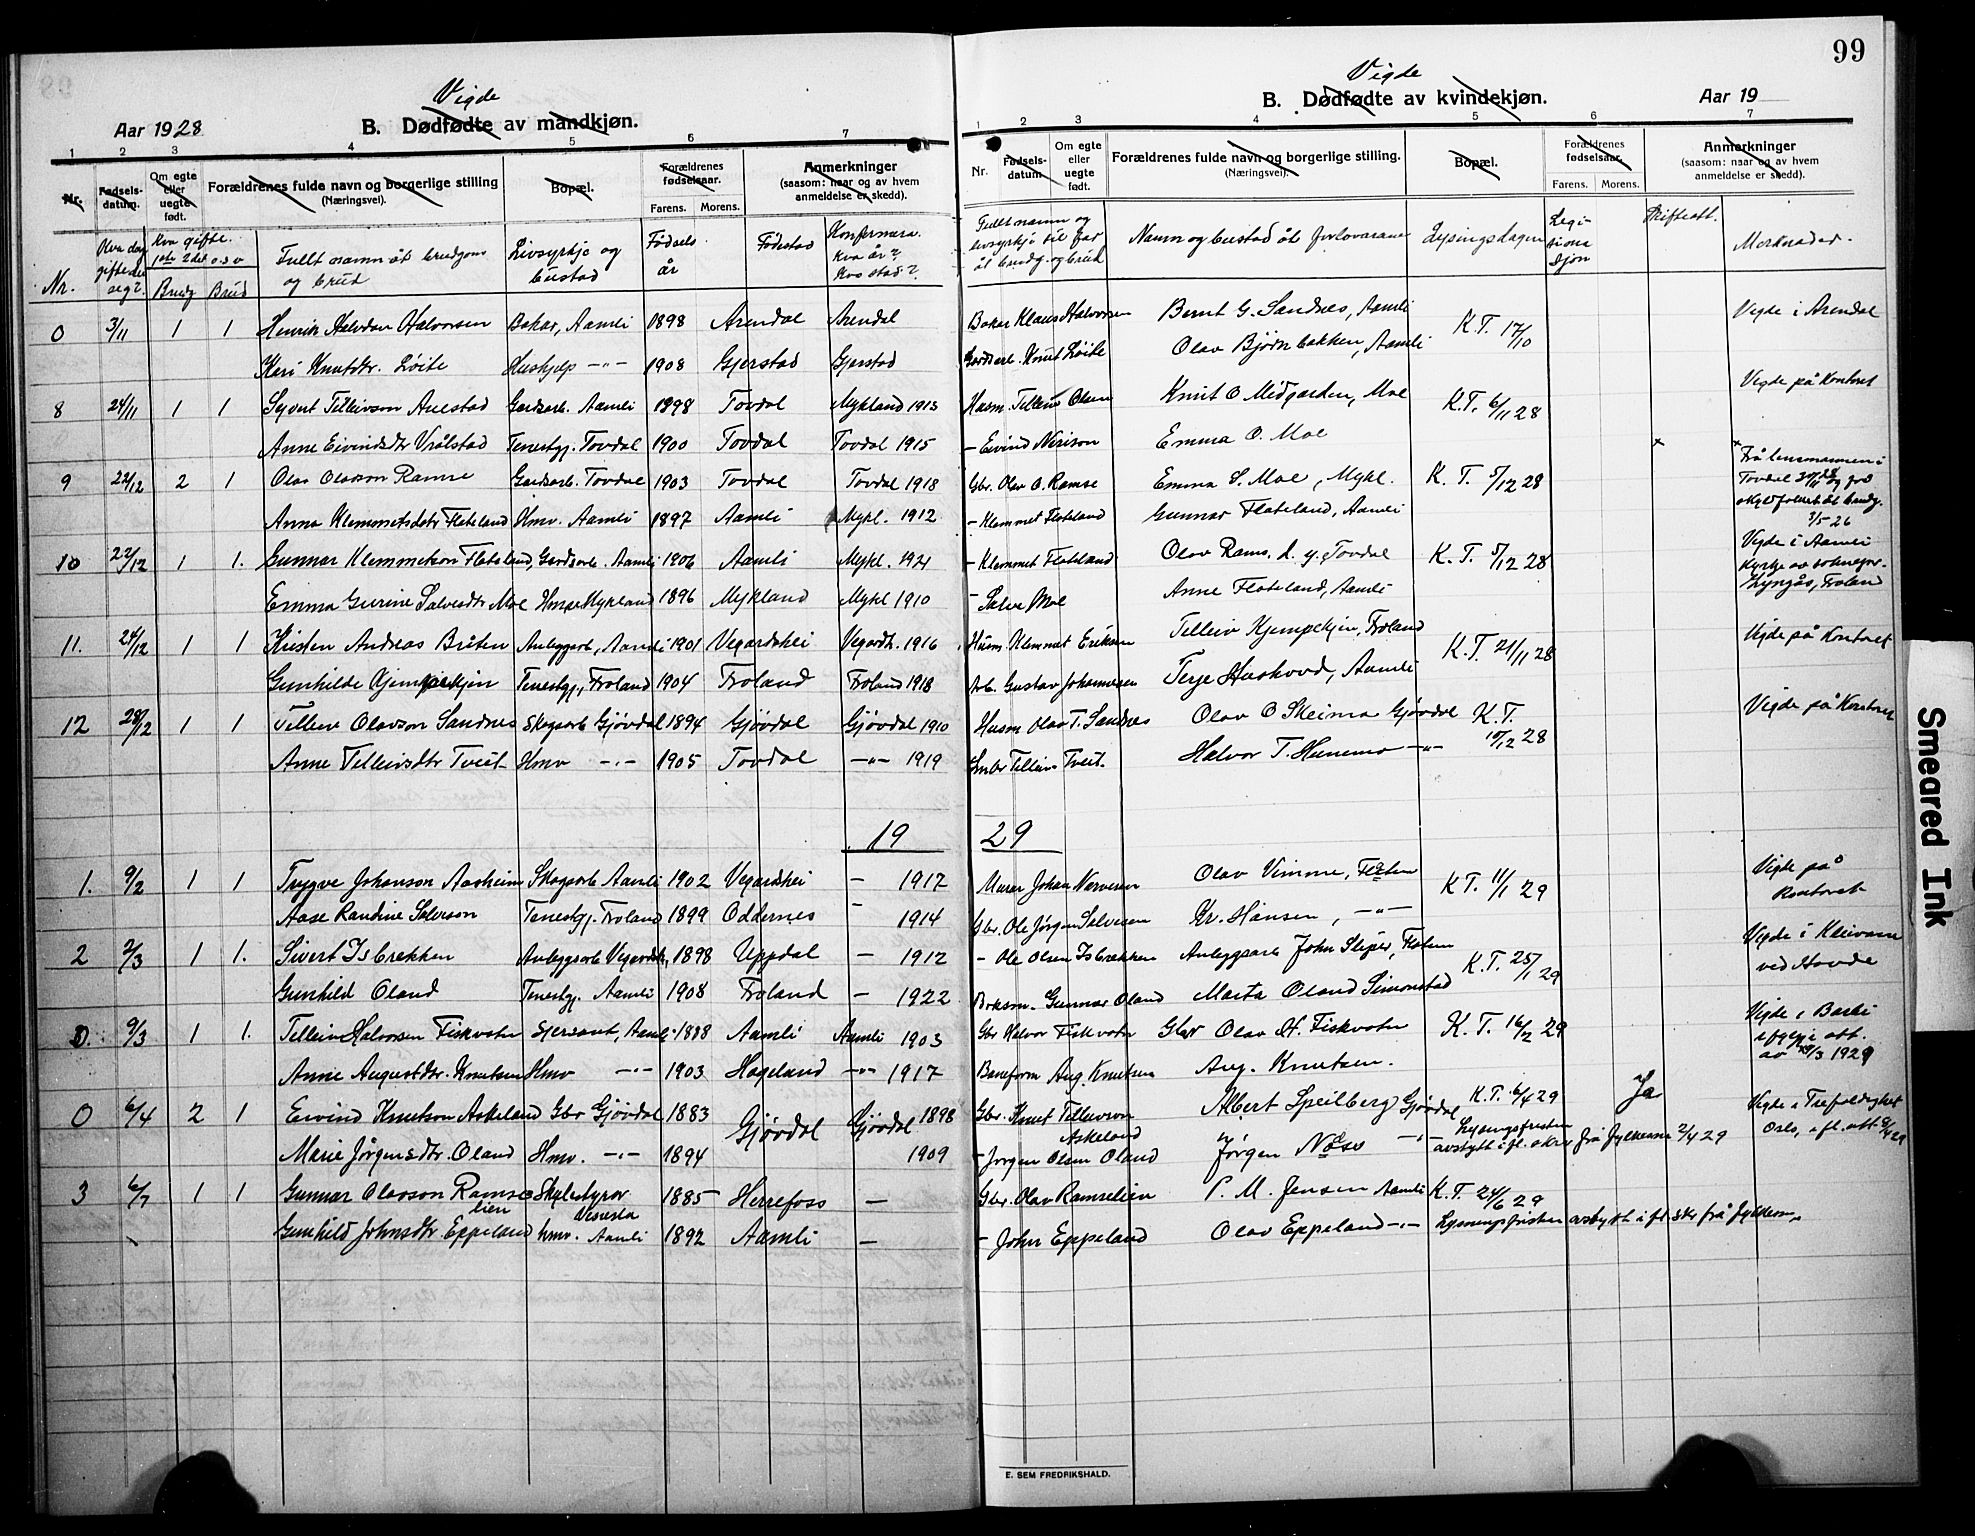 99
Vigde
Aar 1928 B. Dødfødte av mandkjøn.
1 2 3 4 5 6 7
Nr. Fødsels-datum. Om egte eller uegte født. Forældrenes fulde navn og borgerlige stilling (Næringsvei). Bopæl. Forældrenes fødselsaar. Farens. Morens. Anmerkninger (saasom: naar og av hvem anmeldelse er skedd).
Nr. Kva dag gifte dei seg? Kva gifte. fyrste 2det o.s.v Brudg Brud Fullt namn åt brudgom og brud Livsyrkje og bustad Fødselsår Fødestad Konfirmera. Kva år? Kva stad?
Vigde
B. Dødfødte av kvindekjøn. Aar 19
1 2 3 4 5 6 7
Nr. Fødsels-datum. Om egte eller uegte født. Forældrenes fulde navn og borgerlige stilling. (Næringsvei). Bopæl. Forældrenes fødselsaar. Farens. Morens. Anmerkninger (saasom: naar og av hvem anmeldelse er skedd).
Fullt namn og livsyrkje til far åt brudg. og brud Namn og bustad åt forlovarane Lysingsdagen Legi-tima-sjon Skifteatt. Merknader.
0 3/11 1 1 Henrik Halvdan Halvorsen Bakar, Aamli 1898 Arendal Arendal Bakar Klaus Halvorsen Bernt G. Sandnes, Aamli K.T. 17/10 Vigde i Arendal
Kari Knutsdtr. Løite Hushjelp -"- 1908 Gjerstad Gjerstad Gardsarb. Knut Løite Olav Bjørnbakken, Aamli
8 24/11 1 1 Syvert Tellevson Aulstad Gardsarb. Aamli 1898 Tovdal Mykland 1913 Husm. Telleiv Olsen Knut O. Midgarden, Moe K.T. 6/11 28 Vigde på Kontoret
Anne Eivindsdtr Vrålstad Tenestgj. Tovdal 1900 Tovdal Tovdal 1915 - Eivind Nirison Emma O. Moe
9 22/12 2 1 Olav Olavson Ramse Gardsarb. Tovdal 1903 Tovdal Tovdal 1918 Gbr. Olav O. Ramse Emma S. Moe, Mykl. K. T. 5/12 28 x x Frå lensmannen i Tovdal
Anna Klemmetsdtr Flateland Hmv. Aamli 1897 Aamli Mykl. 1912 - Klemmet Flateland Gunnar Flateland, Aamli skyldfolket åt brudg. 3/5-26
10 22/12 1 1. Gunnar Klemmetson Flateland, Gardsarb. Aamli 1906 Aamli Mykl. 1921 - Klemmet Flateland Olav Rams. d. y. Tovdal K. T. 5/12 28 Vigde i Aamli kyrkje av sokneprest Lyngås, Froland
Emma Gurine Salvesdtr Moe Hmv Mykland 1896 Mykland Mykl 1910 - Salve Moe Anne Flateland, Aamli
11. 24/12 1 1 Kristen Andreas Bråten Anleggsarb, Aamli 1901 Vegardshei Vegardsh. 1916 Husm. Klemmet Eriksen Telleiv Kjempekjen, Froland K.T. 21/11 28 Vigde på Kontoret
Gunhilde Kjempekjen Tenestgj, Froland 1904 Froland Froland 1918 Arb. Gustav Johannesen Terje Haskovd, Aamli
12 28/12 1 1 Telleiv Olavson Sandnes Skogsarb Gjøvdal 1894 Gjøvdal Gjøvdal 1910 Husm Olav T. Sandnes Olav O Skeimo Gjøvdal K.T. 10/12 28 Vigde på Kontoret
Anne Telleivsdtr Tveit Hmv -"- 1905 Tovdal -"- 1919 Gmbr Telleiv Tveit. Halvor T. Hunemo -"-
19 29
1. 9/2 1 1 Trygve Johanson Aasheim Skogsarb Aamli 1902 Vegardshei - 1917 Murar Johan Olav Vimme, Flaten K T. 11/1 29 Vigde på Kontoret
Aase Randine Salveson Tenestgj. Froland 1899 Oddernes - 1914 Gbr. Ole Jørgen Salvesen Kr. Hansen, -"-
2 2/3 1 1. Sivert Isbrekken Anleggsarb Vegardsh, 1898 Uppdal - 1912 - Ole Olsen Isbrekken Anleggsarb John Sliper, Flaten K.T. 25/1 29 Vigde i Kleivane ved Hovde
Gunhild Oland Tenestgj. Aamli 1908 Froland - 1922 Gunnar Oland Marta Oland Simonstad
0. 9/3 1 1. Telleiv Halvorsen Fiskvatn Sjersant, Aamli 1888 Aamli Aamli 1903 Gbr Halvor Fiskvatn Gbr Olav H. Fiskvatn K. T. 16/2 29 Vigde i Barbu ifylgje att. av 19/3 1929
Anne Augustdtr. Knutsen Hmv -"- 1903 Hægeland -"- 1917 Baneform Aug. Knutsen Aug. Knutsen.
0 6/4 2 1 Eivind Knutson Askeland Gbr Gjøvdal 1883 Gjøvdal Gjøvdal 1898 Gbr. Knut Tellevson Askeland Albert Speilberg Gjøvdal K.T. 6/4 29 Ja Vigde i Trefoldighet Oslo, i fl. att 9/4 29
Marie Jørgensdtr. Oland Hmv. -"- 1894 1909 - Jørgen Olsen Oland Jørgen Næse -"- Lysingsfristen avstytt i fl. skr frå fylkesm 2/4 29
3 6/7 1 1 Gunnar Olavson Ramselien Skylestyrar 1885 Herrefoss - Gbr. Olav Ramselien P. M. Jensen Aamli K. T. 24/6 29
Gunhild Johnsdtr. Eppeland hmv. Aamli 1892 Aamli - - John Eppeland Olav Eppeland -"- Lysningsfristen avstytt i fl skr frå fylkesm.
E. SEM FREDRIKSHALD.
Smeared Ink